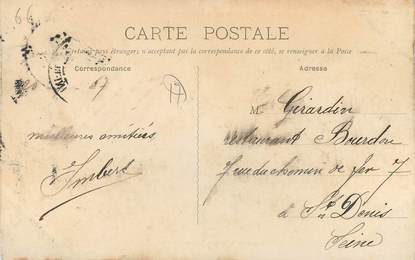 66
CARTE POSTALE
Certains pays étrangers n'acceptent pas la correspondance de ce côté, se renseigner à la Poste
Correspondance
Adresse
07
meilleures amitiés
Imbert
M. Girardin
restaurant Bourdon
7 rue du chemin de fer 7
à St Denis
Seine